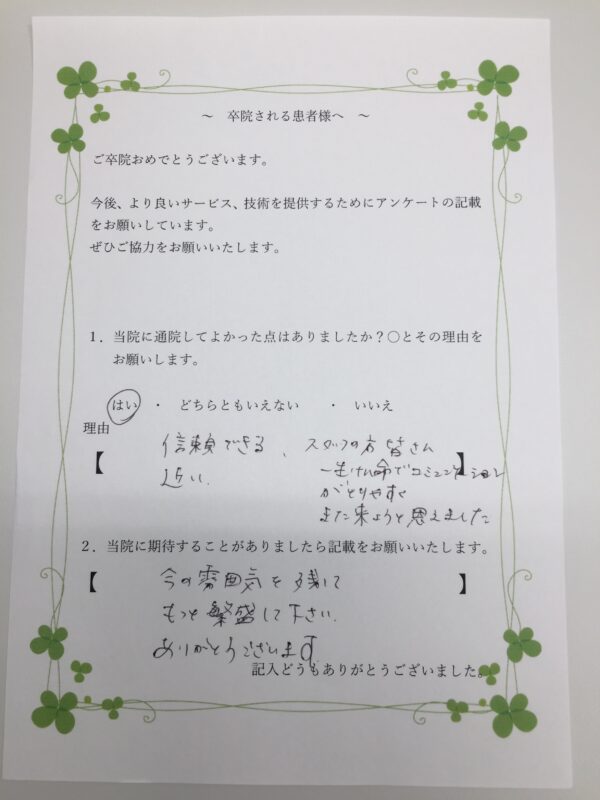 ～ 卒院される患者様へ ～
ご卒院おめでとうございます。
今後、より良いサービス、技術を提供するためにアンケートの記載
をお願いしています。
ぜひご協力をお願いいたします。
１．当院に通院してよかった点はありましたか？○とその理由を
お願いします。
はい ・ どちらともいえない ・ いいえ
理由
【 信頼できる、スタッフの方皆さん 】
近い 一生けん命でコミュニケーション
がとりやすく
また来ようと思えました
２．当院に期待することがありましたら記載をお願いいたします。
【 今の雰囲気を残して 】
もっと繁盛して下さい。
ありがとうございます
記入どうもありがとうございました。